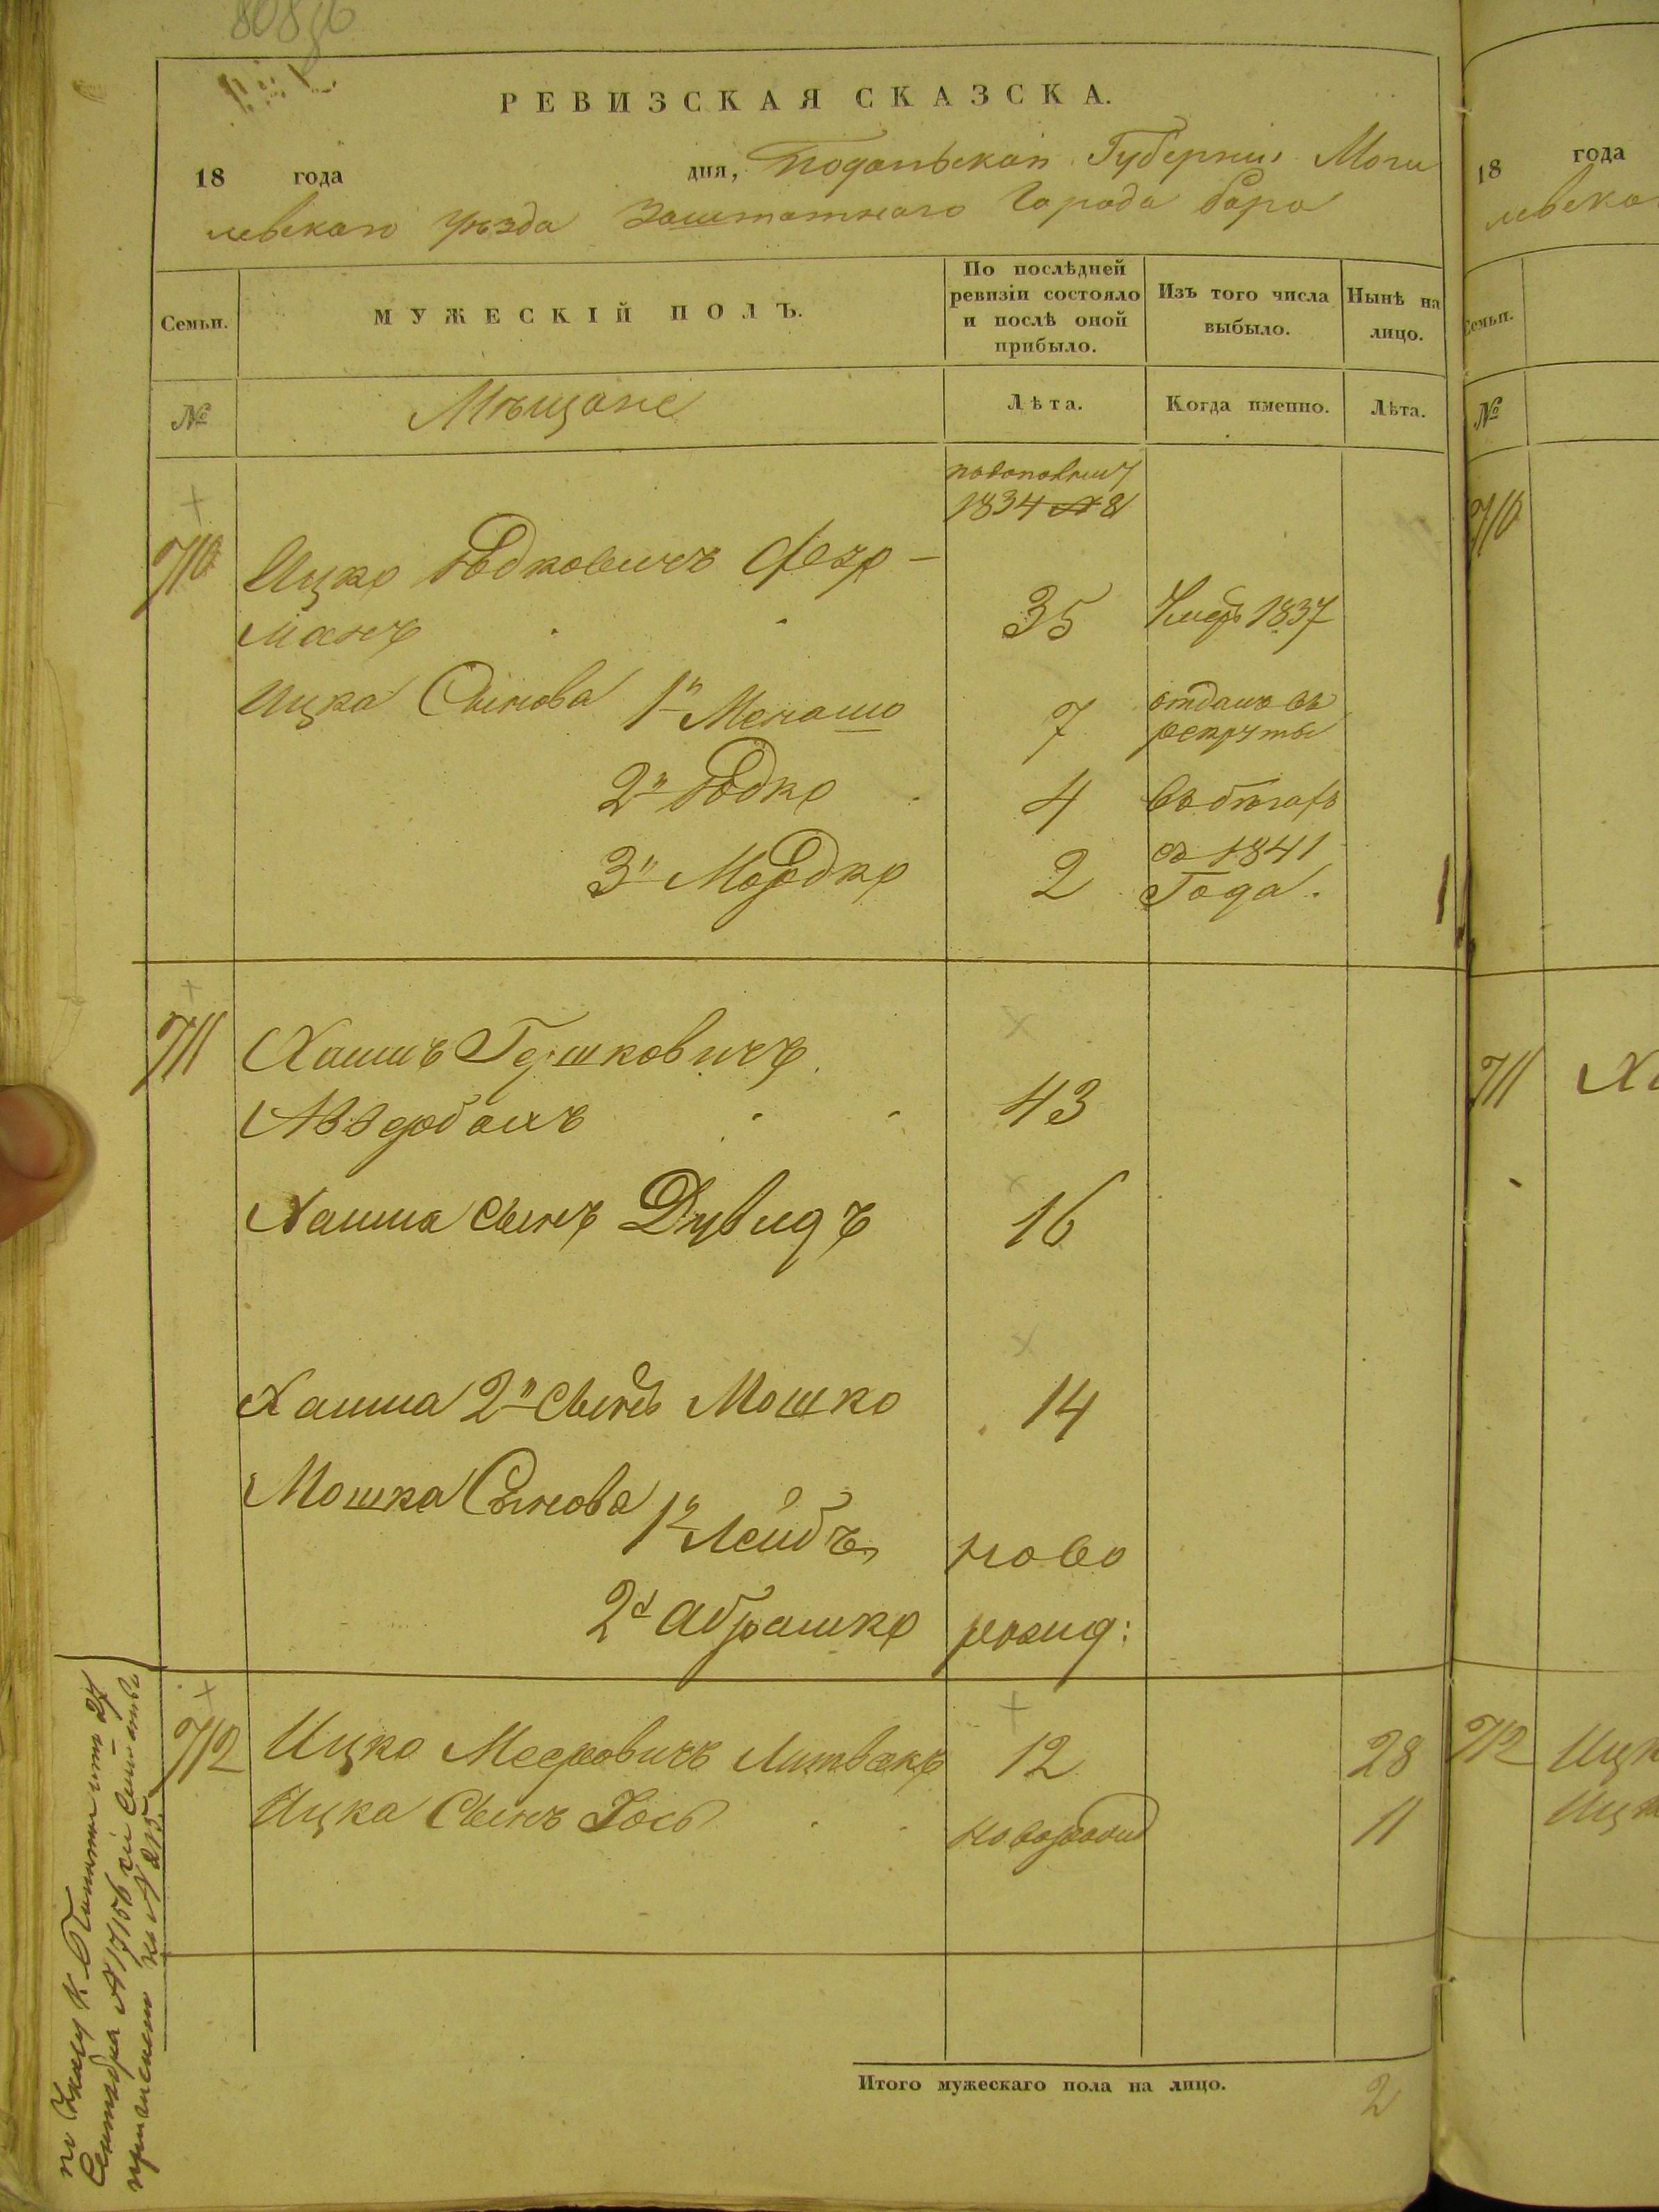 808
РЕВИЗСКАЯ СКАЗСКА.
18 года дня, Подольской Губернии Моги
левскаго уезда Заштатнаго Города Бара
Семьи.
МУЖЕСКІЙ ПОЛЪ.
По послѣдней
ревизіи состояло
и послѣ оной
прибыло.
Изъ того числа
выбыло.
Нынѣ на
лицо.
№
Мѣщане
Лѣта.
Когда именно.
Лѣта.
1834 № 8
710 Ицко
манъ 35 Умеръ 1837
Ицка Сынова 1й Менашо 7 отданъ въ
рекруты
2й 4 въ бегахъ
3й Мордко 2 съ 1841
Года.
711 Хаимъ Гершковичъ
Авербахъ 43
Хаима сынъ Дувидъ 16
Хаима 2й сынъ Мошко 14
Мошка Сынова
1й Лейбъ ново
2й Абрашко рожд:
712 Ицко Мееровичъ Литвакъ 12 28
Ицка Сынъ Іось новорожд 11
Итого мужескаго пола на лицо. 2
по Указу К. Палаты отъ 24
Сентября № 17156 сіи Семейства
причислены къ № 215
18 года
левска
Семьи.
№
710
711 Ха
712 Ицк
Ицк